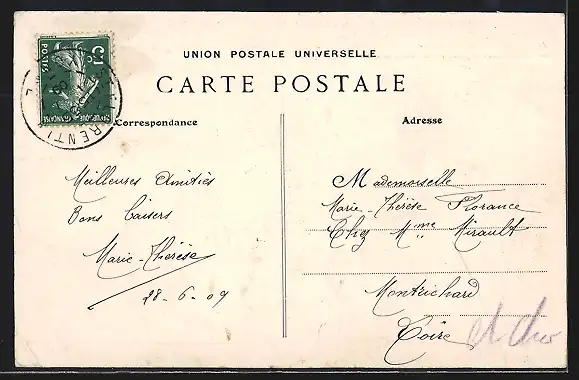 UNION POSTALE UNIVERSELLE
CARTE POSTALE
Correspondance
Adresse
Meilleures Amitiés
Bons Baisers
Marie-Thérèse
28-6-09
Mademoiselle
Marie-Thérèse Florance
Chez Mme Mirault
Montrichard
Loire et Cher
5c
POSTES
REPUBLIQUE FRANÇAISE